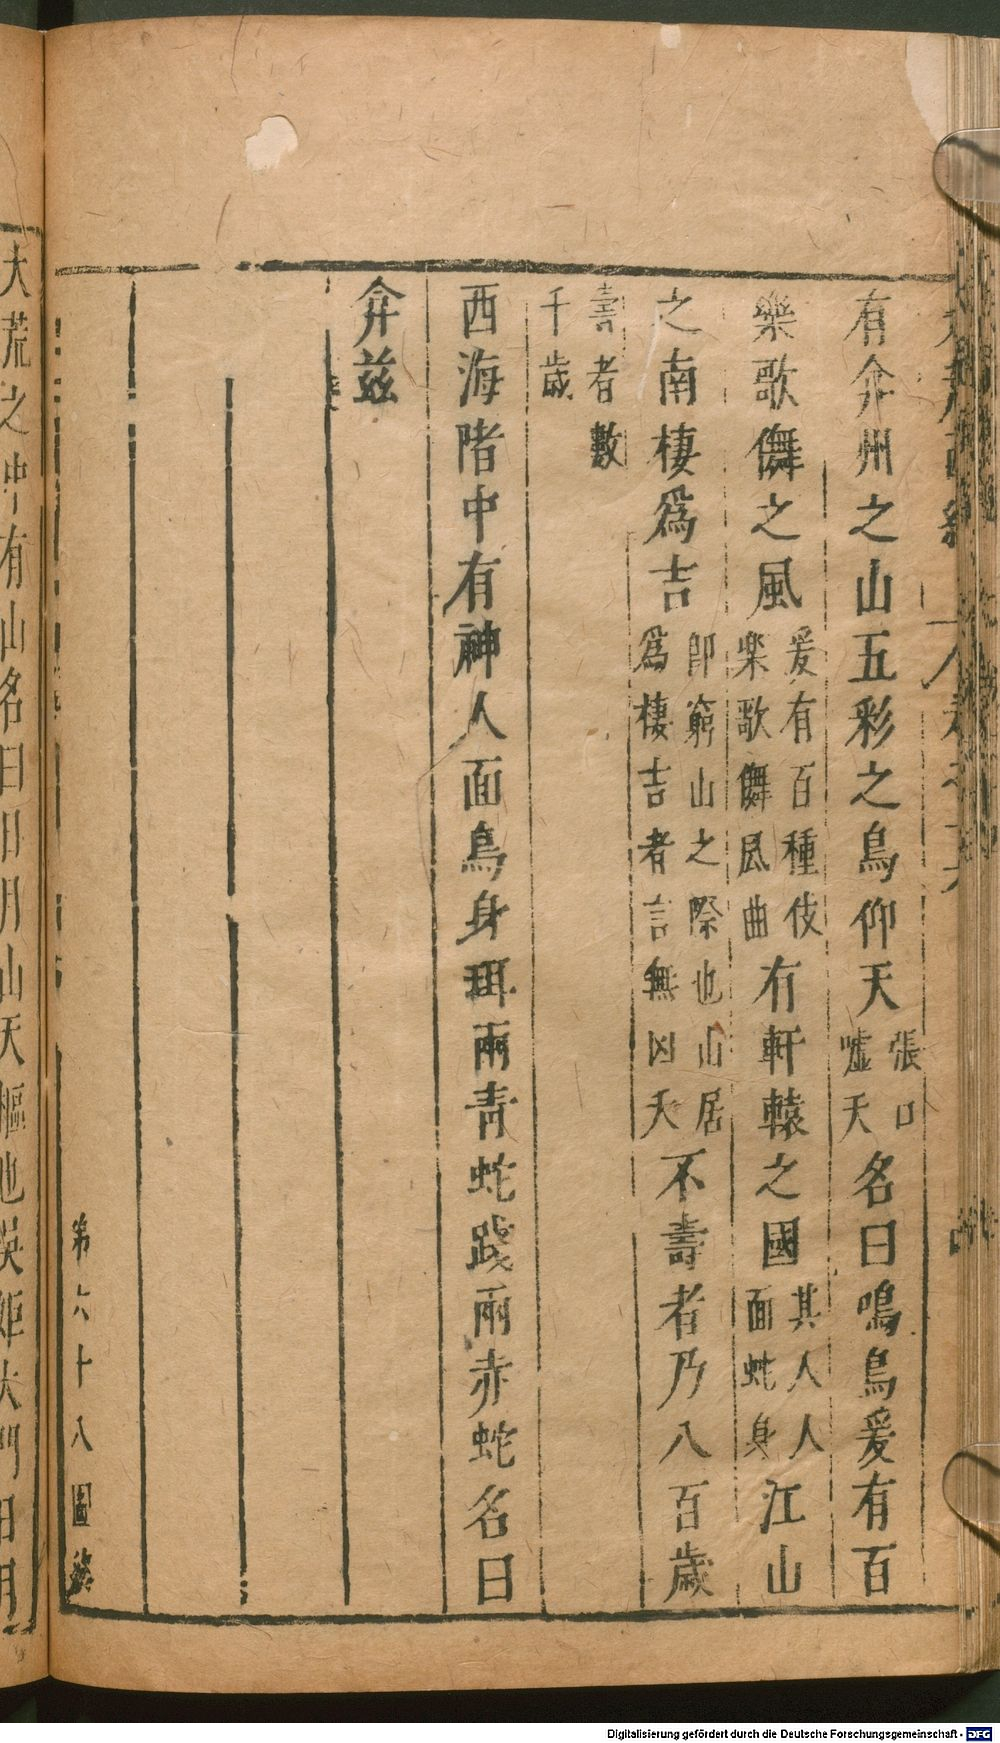 有弇州之山五彩之鳥仰天張口噓天名曰鳴鳥爰有百
樂歌儛之風爰有百種伎樂歌儛風曲有軒轅之國其人人面蛇身江山
之南棲爲吉卽窮山之際也山居爲棲吉者言無凶夭不壽者乃八百歲
壽者數千歲
西海陼中有神人面鳥身珥兩青蛇踐兩赤蛇名曰
弇兹
第六十八圖
大荒之中有山名曰日月山天樞也吳姖大門日月
Digitalisierung gefördert durch die Deutsche Forschungsgemeinschaft - DFG